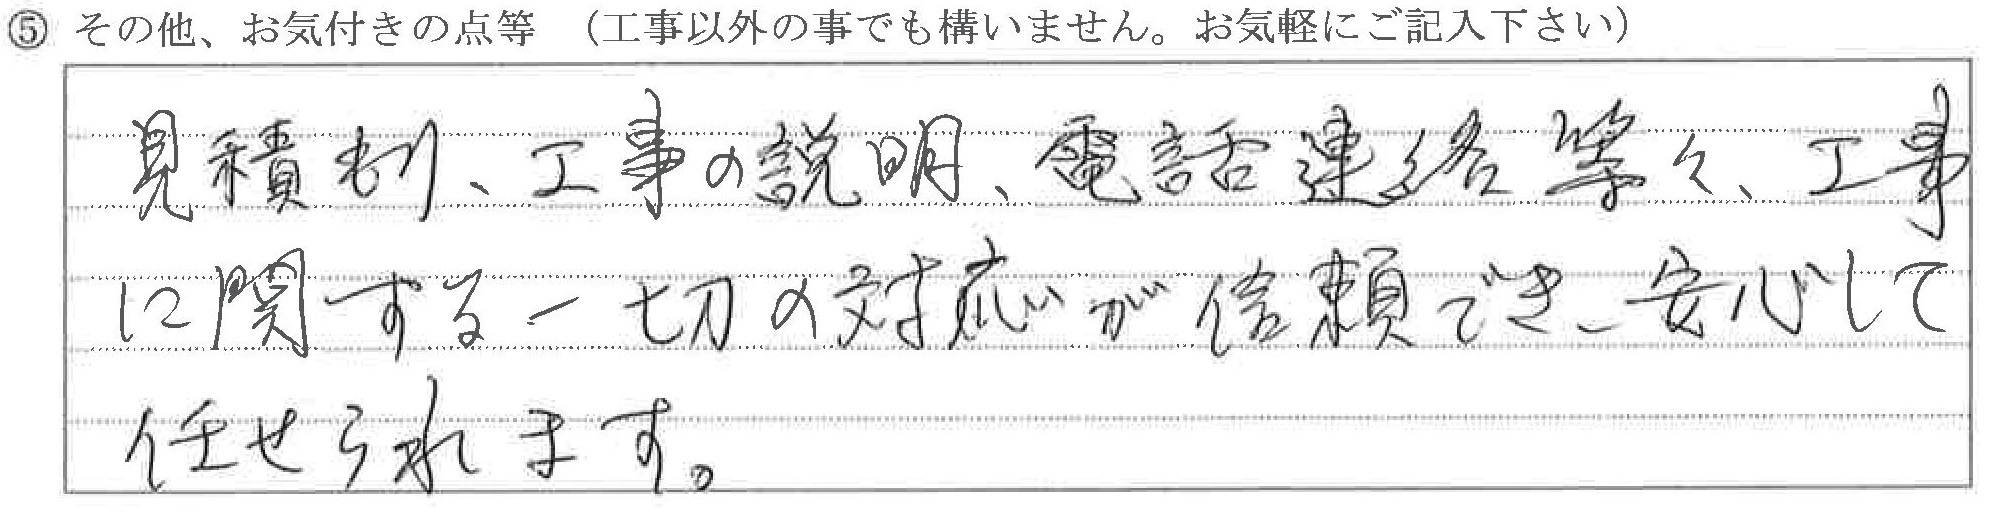 ⑤ その他、お気付きの点等 （工事以外の事でも構いません。お気軽にご記入下さい）
見積り、工事の説明、電話連絡等々、工事
に関する一切の対応が信頼でき、安心して
任せられます。